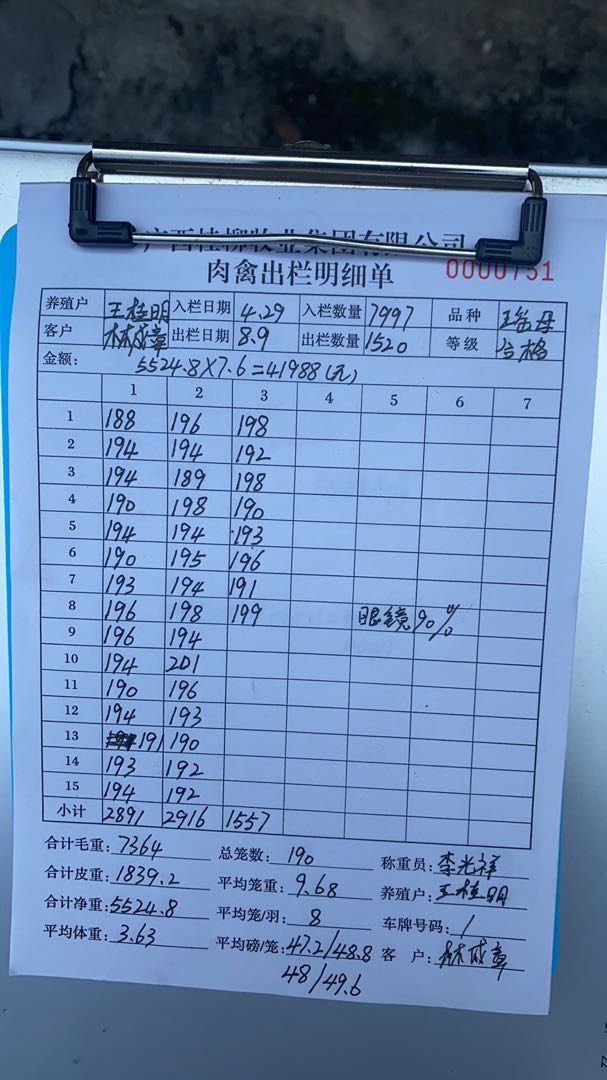 广西桂柳牧业集团有限公司
肉禽出栏明细单 0000751
养殖户 王桂明 入栏日期 4.29 入栏数量 7997 品种 瑶母
客户 林成章 出栏日期 8.9 出栏数量 1520 等级 合格
金额: 5524.8X7.6=41988(元)
1 2 3 4 5 6 7
1 188 196 198
2 194 194 192
3 194 189 198
4 190 198 190
5 194 194 193
6 190 195 196
7 193 194 191
8 196 198 199 眼镜90%
9 196 194
10 194 201
11 190 196
12 194 193
13 191 190
14 193 192
15 194 192
小计 2891 2916 1557
合计毛重: 7364 总笼数: 190 称重员: 李光祥
合计皮重: 1839.2 平均笼重: 9.68 养殖户: 王桂明
合计净重: 5524.8 平均笼/羽: 8 车牌号码: /
平均体重: 3.63 平均磅/笼: 47.2/48.8 客 户: 林成章
48/49.6